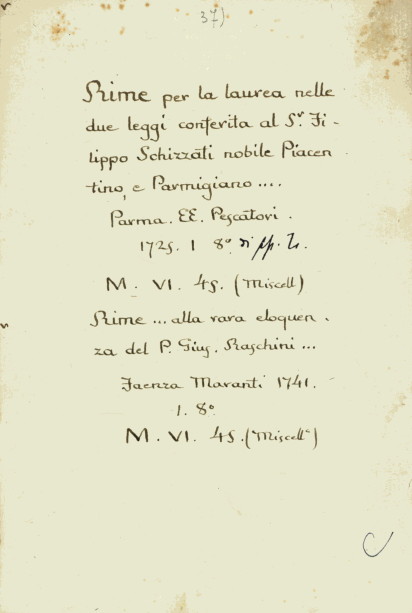 37)
Rime per la laurea nelle
due leggi conferita al Sr. Fi-
lippo Schizzati nobile Piacen
tino, e Parmigiano ....
Parma. EE. Pescatori.
1725. 1 8º di pp.
M. VI. 45. (Miscell)
Rime ... alla rara eloquen.
za del P. Gius. Raschini ...
Faenza Maranti 1741.
1. 8º
M. VI. 45. (Miscellª)